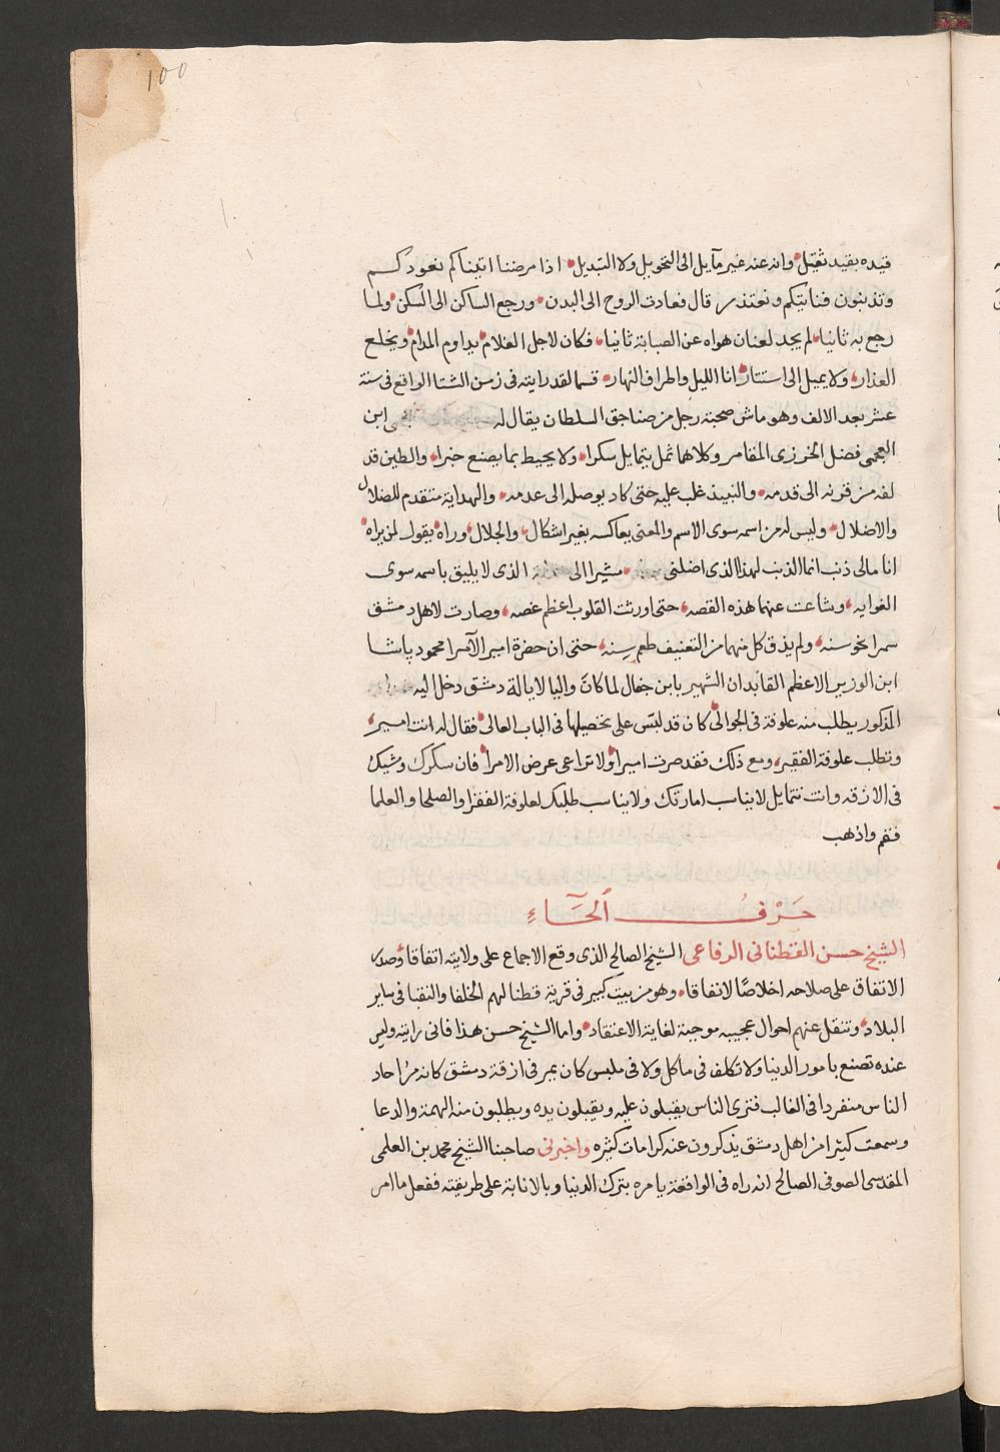 100
قيده بقيد ثقيل وانه عنه غير مآيل الى التحويل ولا التبديل اذا مرضنا اتيناكم نعودكم
وتذنبون فناتيكم ونعتذر قال فعادت الروح الى البدن ورجع الساكن الى السكن ولما
رجع به ثانيا لم يجد لعنان هواه عن الصبابة ثانيا فكان لاجل الغلام يداوم المدام ويخلع
العذار ولا يميل الى استتار انا الليل واطراف النهار قسما لقد رايته فى زمن الشتا الواقع فى سنة
عشر بعد الالف وهو ماش صحبة رجل من صناجق السلطان يقال له ابن
العجمى فضل الخرزى المقامر وكلاهما ثمل يتمايل سكرا ولا يحيط بما يصنع خبرا والطين قد
لفه من قرنه الى قدمه والنبيذ غلب عليه حتى كاد يوصله الى عدمه والهداية متقدم للضلال
والاضلال وليس له من اسمه سوى الاسم والمعنى يعاكسه بغير اشكال والجلال وراه يقول لمن يراه
انا مالى ذنب انما الذنب لهذا الذى اضلنى مشيرا الى الذى لا يليق باسمه سوى
الغوايه وشاعت عنهما هذه القصه حتى اورثت القلوب اعظم غصه وصارت لاهل دمشق
سمرا نحو سنه ولم يذق كل منهما من التعنيف طعم سِنه حتى ان حضرة امير الآمرا محمود پاشا
ابن الوزير الاعظم القابدان الشهير بابن جغال لما كان واليا لايالة دمشق دخل اليه
المذكور يطلب منه علوفة فى الجوالى كان قد لبّس على تحصيلها فى الباب العالى فقال له انت امير
وتطلب علوفة الفقير ومع ذلك فقد صرت اميرا ولا تراعى عرض الامرا فان سكرك ومشيك
فى الازقه وانت تتمايل لا يناسب امارتك ولا يناسب طلبك لعلوفة الفقرا والصلحا والعلما
فقم واذهب
حَرْفُ الحَآءِ
الشيخ حسن القطنانى الرفاعى الشيخ الصالح الذى وقع الاجماع على ولايته اتفاقا
الاتفاق على صلاحه اخلاصًا لا نفاقا وهو من بيت كبير فى قرية قطنا لهم الخلفا والنقبا فى ساير
البلاد وتنقل عنهم احوال عجيبه موجبة لغاية الاعتقاد واما الشيخ حسن هذا فانى رايته وليس
عنده تصنع بامور الدنيا ولا تكلف فى ماكل ولا فى ملبس كان يمر فى ازقة دمشق كانه من احاد
الناس منفردا فى الغالب فترى الناس يقبلون عليه ويقبلون يده ويطلبون منه الهمة والدعا
وسمعت كثيرا من اهل دمشق يذكرون عنه كرامات كثيره واخبرنى صاحبنا الشيخ محمد بن العلمى
المقدسى الصوفى الصالح انه راه فى الواقعة يامره بترك الدنيا وبالانابة على طريقته ففعل ما امر